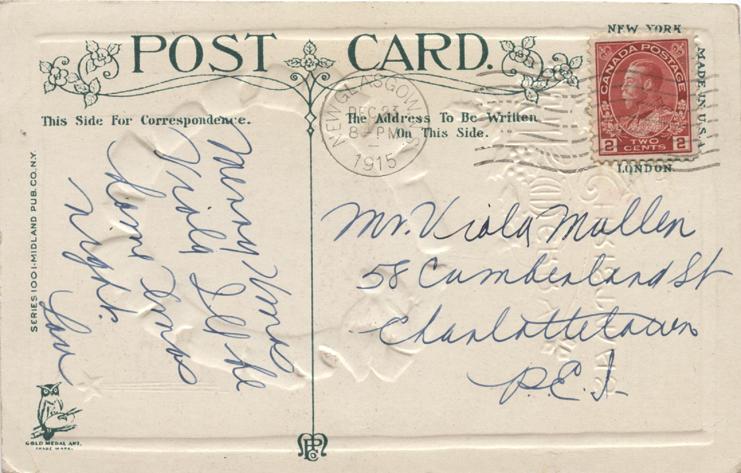 POST CARD.
NEW YORK
MADE IN U.S.A.
LONDON
This Side For Correspondence.
The Address To Be Written
On This Side.
NEW GLASGOW
DEC 23
8 PM
1915
N.S.
CANADA POSTAGE
2 TWO CENTS 2
Merry Xmas
Viola I'll be
home Xmas
night.
Lou
Mr. Viola Mullen
58 Cumberland St
Charlottetown
P.E.I.
SERIES 1001-MIDLAND PUB. CO. N.Y.
GOLD MEDAL ART.
TRADE MARK.